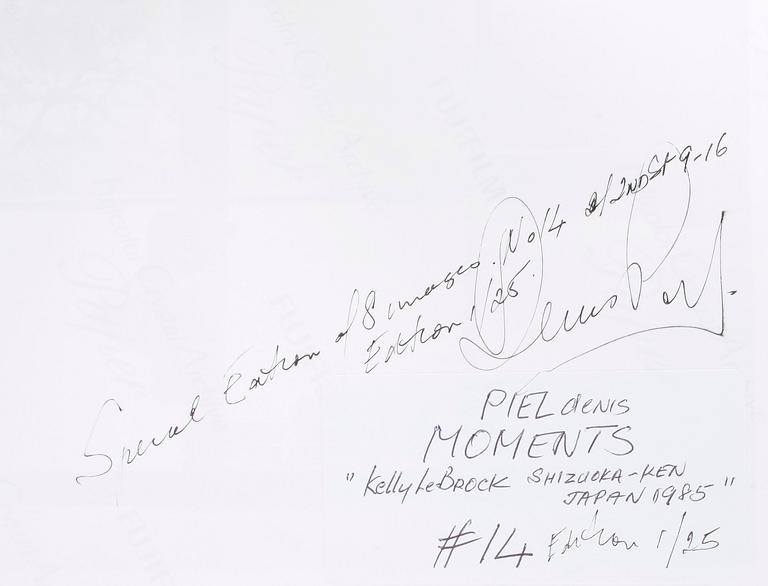 Special Edition of 8 images. No 14 of 2ND St 9-16
Edition 1/25.
Denis Piel.
PIEL denis
MOMENTS
"Kelly LeBROCK SHIZUOKA-KEN
JAPAN 1985"
#14 Edition 1/25